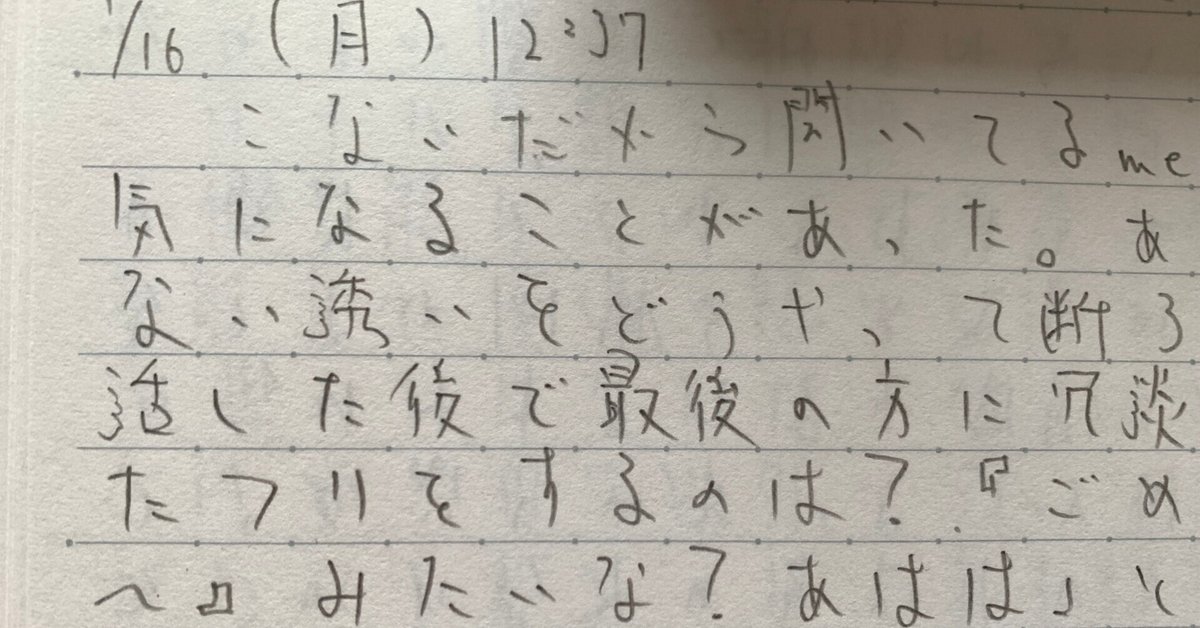 1/16 (月) 12:37
こないだから聞いてるme
気になることがあった。あ
ない誘いをどうやって断ろ
話した後で最後の方に冗談
たフリをするのは?『ごめ
へ』みたいな?あはは」と